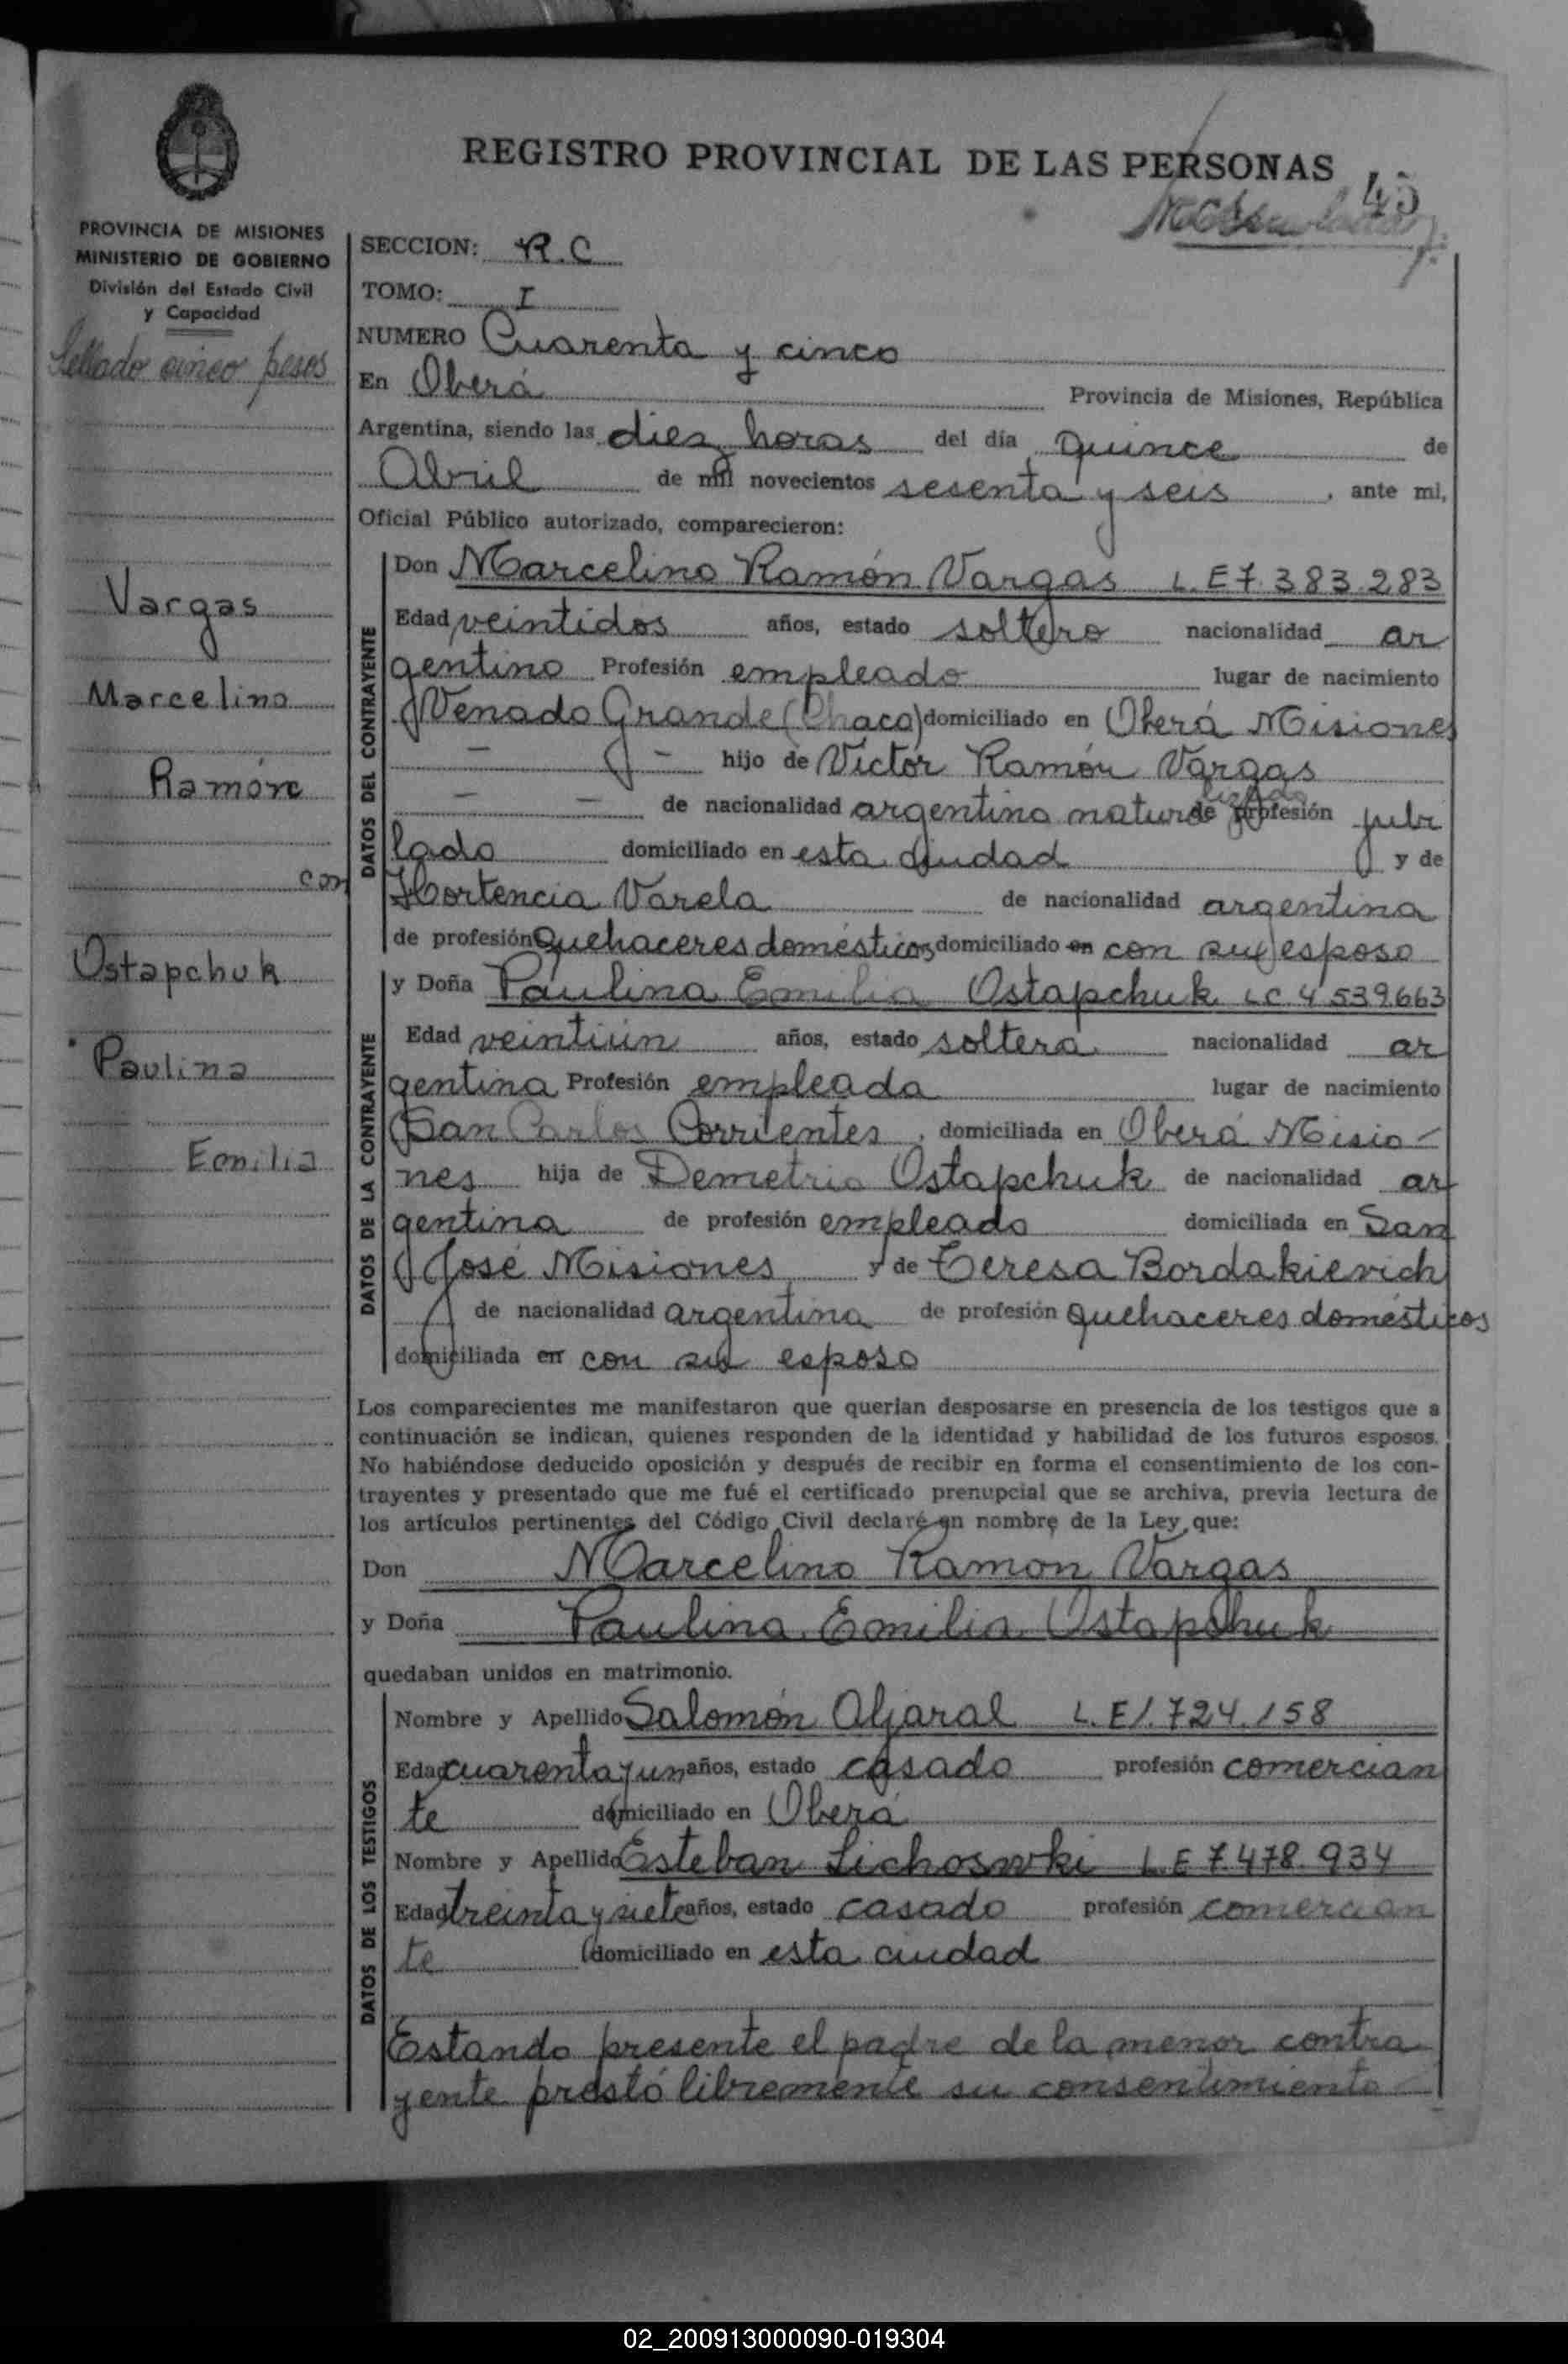 REGISTRO PROVINCIAL DE LAS PERSONAS
45
PROVINCIA DE MISIONES
MINISTERIO DE GOBIERNO
División del Estado Civil
y Capacidad
Sellado cinco pesos
Vargas
Marcelino
Ramón
con
Ostapchuk
Paulina
Emilia
SECCION: R.C
TOMO: I
NUMERO Cuarenta y cinco
En Oberá Provincia de Misiones, República
Argentina, siendo las diez horas del día quince de
Abril de mil novecientos sesenta y seis, ante mi,
Oficial Público autorizado, comparecieron:
DATOS DEL CONTRAYENTE
Don Marcelino Ramón Vargas L.E 7.383.283
Edad veintidos años, estado soltero nacionalidad ar
gentino Profesión empleado lugar de nacimiento
Venado Grande (Chaco) domiciliado en Oberá Misiones
hijo de Víctor Ramón Vargas
de nacionalidad argentino de profesión jubi
lado domiciliado en esta ciudad y de
Hortencia Varela de nacionalidad argentina
de profesión quehaceres domésticos domiciliado en con su esposo
DATOS DE LA CONTRAYENTE
y Doña Paulina Emilia Ostapchuk LC 4 539.663
Edad veintiún años, estado soltera nacionalidad ar
gentina Profesión empleada lugar de nacimiento
San Carlos Corrientes, domiciliada en Oberá Misio-
nes hija de Demetrio Ostapchuk de nacionalidad ar
gentina de profesión empleado domiciliada en San
José Misiones y de Teresa Bordakievich
de nacionalidad argentina de profesión quehaceres domésticos
domiciliada en con su esposo
Los comparecientes me manifestaron que querían desposarse en presencia de los testigos que a
continuación se indican, quienes responden de la identidad y habilidad de los futuros esposos.
No habiéndose deducido oposición y después de recibir en forma el consentimiento de los con-
trayentes y presentado que me fué el certificado prenupcial que se archiva, previa lectura de
los artículos pertinentes del Código Civil declaré en nombre de la Ley que:
Don Marcelino Ramon Vargas
y Doña Paulina Emilia Ostapchuk
quedaban unidos en matrimonio.
DATOS DE LOS TESTIGOS
Nombre y Apellido Salomón Aljaral L.E 1.724.158
Edad cuarenta y un años, estado casado profesión comercian
te domiciliado en Oberá
Nombre y Apellido Esteban Lichoswki L.E 7.478.934
Edad treinta y siete años, estado casado profesión comercian
te domiciliado en esta ciudad
Estando presente el padre de la menor contra
yente prestó libremente su consentimiento
02_200913000090-019304